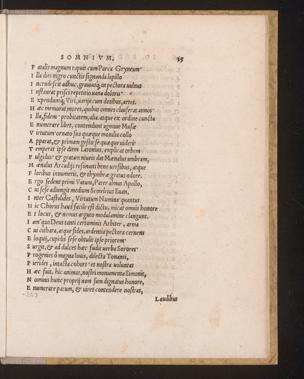 SOMNIVM. 35
F atalis magnum rapuit cum Parca Gryneum
I lla dies nigro cunctis signanda lapillo
I ncrudescit adhuc, grauiusq; in pectora vulnus
I nstaurat prisci repetitio vana doloris
E xpendamq; Viri, iurisq; cum dotibus, artes.
H æc memorat mores, quibus omnes clauserat annos
I lla, fidem probitatem, alia atque ex ordine cuncta
E numerare libet, contendunt agmine Musæ
V irtutum ornato sua quæque monilia collo
A pparat, & primam gestit se quæque videri
T emperat ipse diem Latonius, explicat orbem
V ulgidus & gratum niueis dat Mænalus umbram,
M ænalus Arcadijs resonans bene versibus, atque
F loribus innumeris, & rhymbræ gratus odore.
E rgo sedent primi Vatum, Pater almus Apollo,
C ui sese adiungit medium Semeleius Euan,
I nter Castalides, Virtutum Numina quantus
H ic Chorus haud facile est dictu. micat omnis honore
E t locus, & neruus arguto modulamine clangunt.
I amque Deus tanti certaminis Arbiter, arma
C ui cithara, atque fides, ardentia pectora cernens
E loquij, cupidis sese obtulit ipse priorem
S urge, & ad dulces hæc fudit verba Sorores
P rogenies ô magne Iouis, dilecta Tonanti,
P ierides, intacta cohors & nostra voluntas
H æc fuit, hic animus, nostri monumenta Simonis,
N ominis huic proprij non sum dignatus honore,
E numerare parum, & viuei contendere nostras,
Laudibus